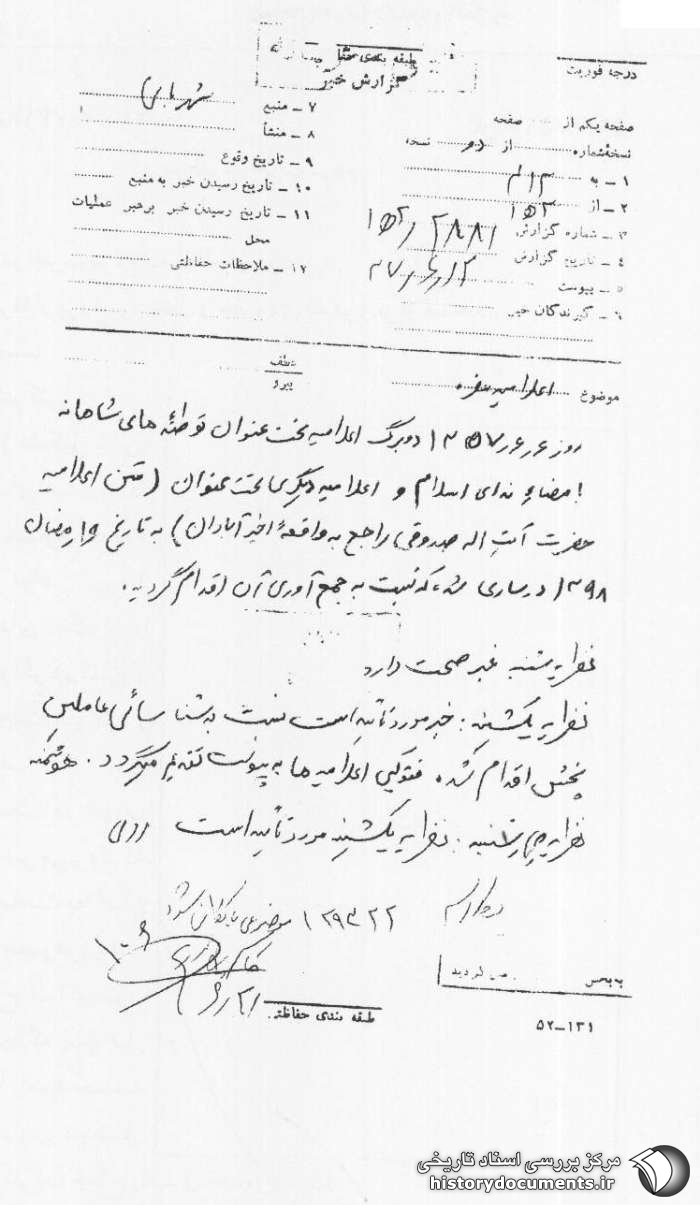 طبقه بندی حفا
گزارش خبر
درجه فوریت
صفحه یکم از صفحه
نسخهٔ شماره از دو نسخه
۱ ـ به ۳۱۲
۲ ـ از
۳ ـ شماره گزارش
۴ ـ تاریخ گزارش
۵ ـ پیوست
۶ ـ گیرندگان خبر
۷ ـ منبع شهربانی
۸ ـ منشأ
۹ ـ تاریخ وقوع
۱۰ ـ تاریخ رسیدن خبر به منبع
۱۱ ـ تاریخ رسیدن خبر برهبر عملیات
محل
۱۲ ـ ملاحظات حفاظتی
عطف
پیرو
موضوع اعلامیه مضره
روز ۶ر۶ر۱۳۵۷ دو برگ اعلامیه تحت عنوان توطئه های شاهانه
بامضاء ندای اسلام و اعلامیه دیگری تحت عنوان (متن اعلامیه
حضرت آیت اله صدوقی راجع به واقعهٔ اخیر آبادان) به تاریخ ۱۹ رمضان
۱۳۹۸ در ساری که نسبت به جمع آوری آن اقدام گردید.
نظریه شنبه خبر صحت دارد
نظریه یکشنبه : خبر مورد تأیید است نسبت به شناسائی عاملین
پخش اقدام شد. فتوکپی اعلامیه ها به پیوست تقدیم میگردد. هوشمند
نظریه چهارشنبه : نظریه یکشنبه مورد تأیید است
۱۲۹۳۲۲
به بخش می گردید
طبقه بندی حفاظتی
۵۲ـ۱۳۱
مرکز بررسی اسناد تاریخی
historydocuments.ir